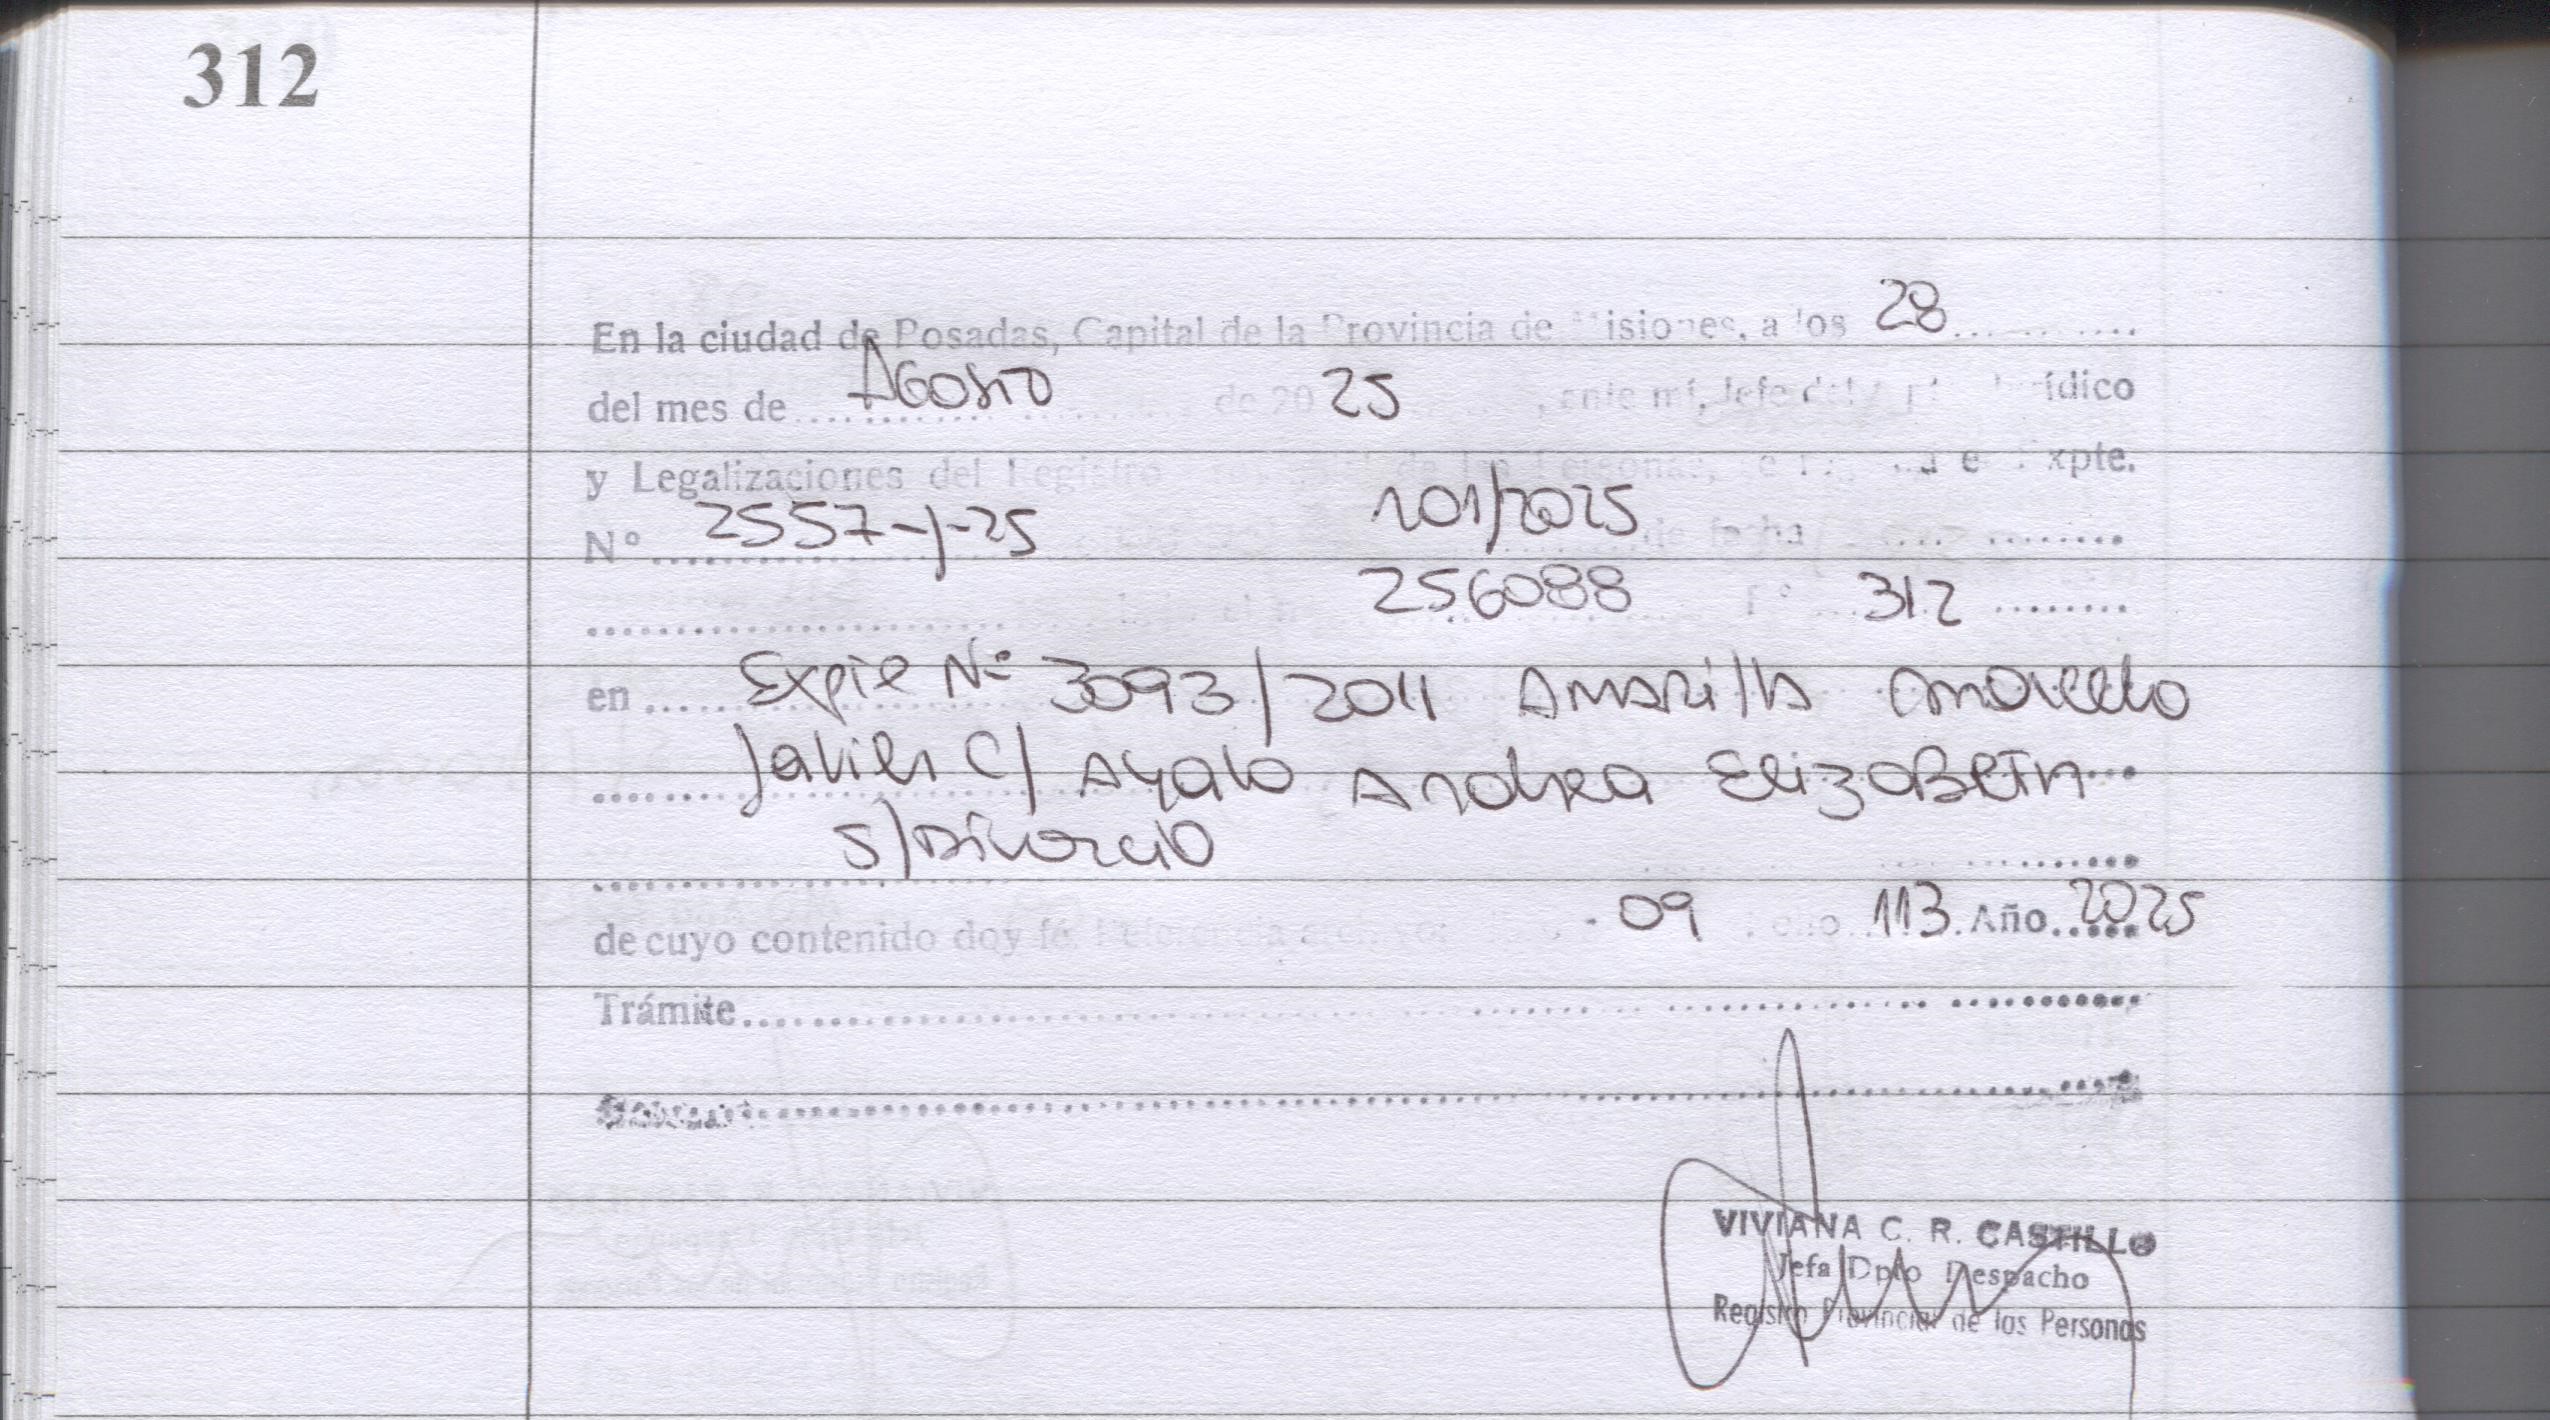 312
En la ciudad de Posadas, Capital de la Provincia de Misiones, a los 28
del mes de Agosto de 20 25, ante mí, Jefe del ídico
y Legalizaciones del Registro de las Personas, Expte.
Nº 2557-J-25 101/2025 de fecha
256088 Fº 312
en Expte Nº 3093/2011 Amarilla Marcelo
Javier C/ Ayala Andrea Elizabeth
S/Divorcio
de cuyo contenido doy fé. Referencia 09 113 Año 2025
Trámite
VIVIANA C. R. CASTILLO
Jefa Dpto Despacho
Registro Provincial de las Personas